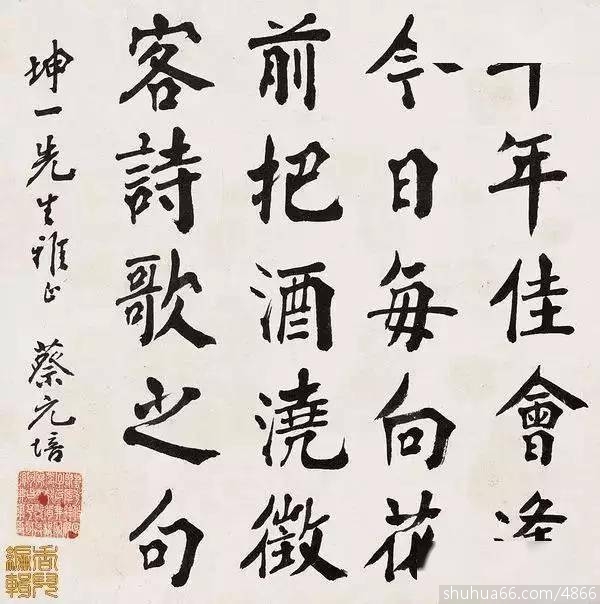 年佳會
今日每向花
前把酒澆徵
客詩歌之句
坤一先生雅正 蔡元培
shuhua66.com / 4866